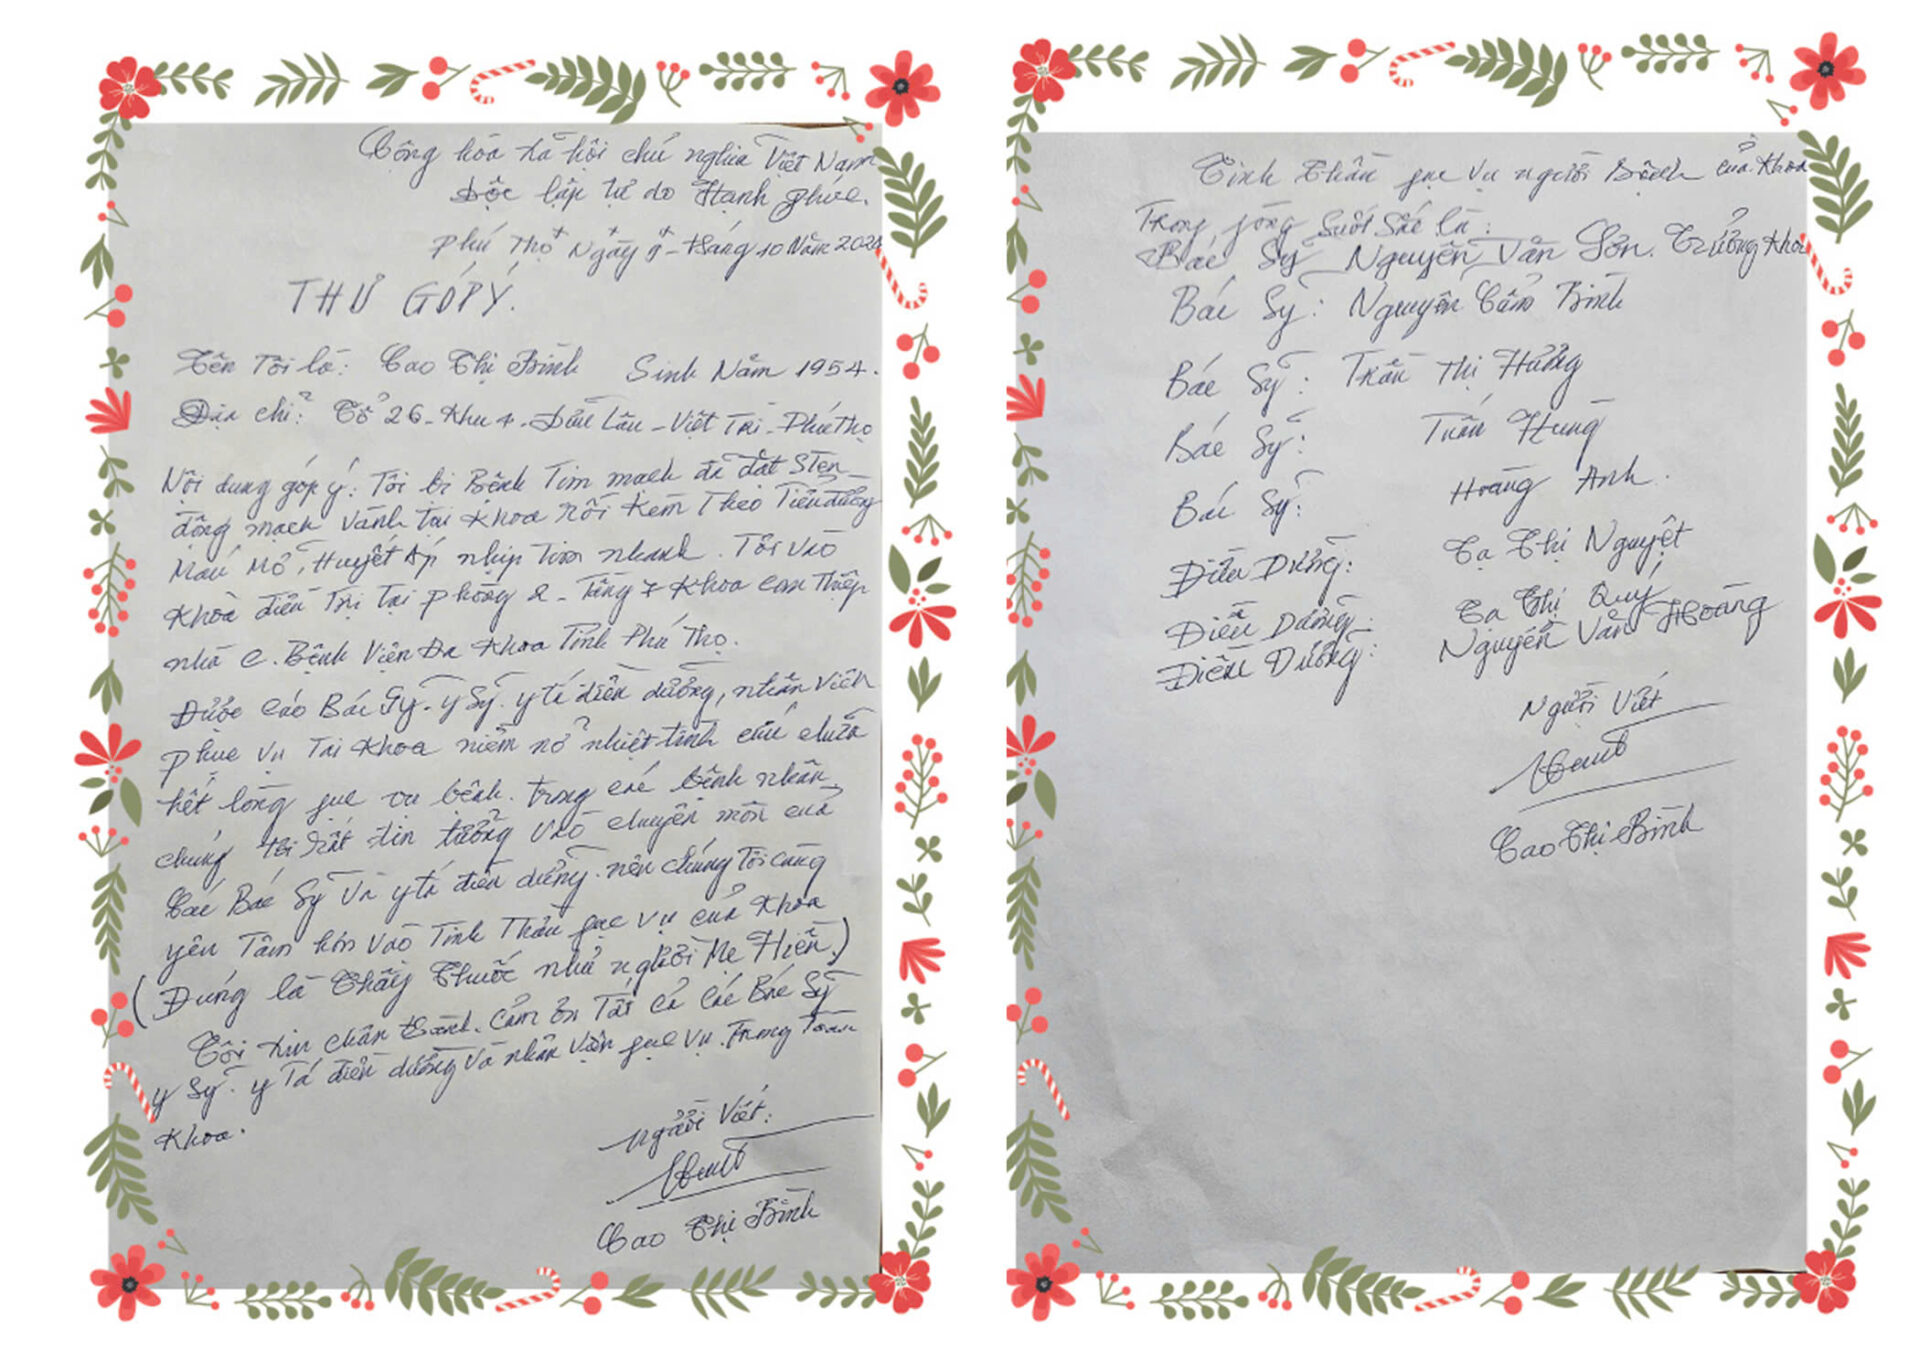 Cộng hòa xã hội chủ nghĩa Việt Nam
Độc lập tự do Hạnh phúc.
Phú Thọ Ngày 9 - tháng 10 Năm 202
THƯ GÓP Ý.
Tên Tôi là: Cao Thị Bình Sinh Năm 1954.
Địa chỉ: Tổ 26 - Khu 4 - Dữu Lâu - Việt Trì - Phú Thọ
Nội dung góp ý: Tôi bị Bệnh Tim mạch đã đặt Sten
động mạch vành tại Khoa rồi kèm Theo Tiểu đường
Máu Mỡ, Huyết Áp nhịp Tim nhanh. Tôi vào
Khoa điều Trị tại phòng 2 - Tầng 7 Khoa can Thiệp
nhà C. Bệnh Viện Đa Khoa Tỉnh Phú Thọ.
Được các Bác Sỹ - y Sỹ - y tá điều dưỡng, nhân viên
phục vụ Tại Khoa niềm nở nhiệt tình cứu chữa
hết lòng fục vụ bệnh. trong các bệnh nhân
chúng tôi rất tin tưởng vào chuyên môn của
Các Bác Sỹ Và y tá điều dưỡng nên chúng Tôi càng
yên Tâm hơn vào Tinh Thần fục vụ của Khoa
(Đúng là Thầy Thuốc như người Mẹ Hiền.)
Tôi xin chân thành. Cảm ơn Tất cả Các Bác Sỹ
y Sỹ. y Tá điều dưỡng và nhân viện fục vụ. Trong Toàn
Khoa.
Người Viết:
Cao Thị Bình
Tinh Thần fục vụ người Bệnh của Khoa
Trong fòng Suất Sắc là:
Bác Sỹ Nguyễn Văn Sơn. Trưởng Khoa
Bác Sỹ: Nguyễn Cẩm Bình
Bác Sỹ: Trần Thị Hường
Bác Sỹ: Tuấn Hưng
Bác Sỹ: Hoàng Anh.
Điều Dưỡng: Tạ Thị Nguyệt
Điều Dưỡng: Tạ Thị Quý
Điều Dưỡng: Nguyễn Văn Hoàng
Người Viết
Cao Thị Bình